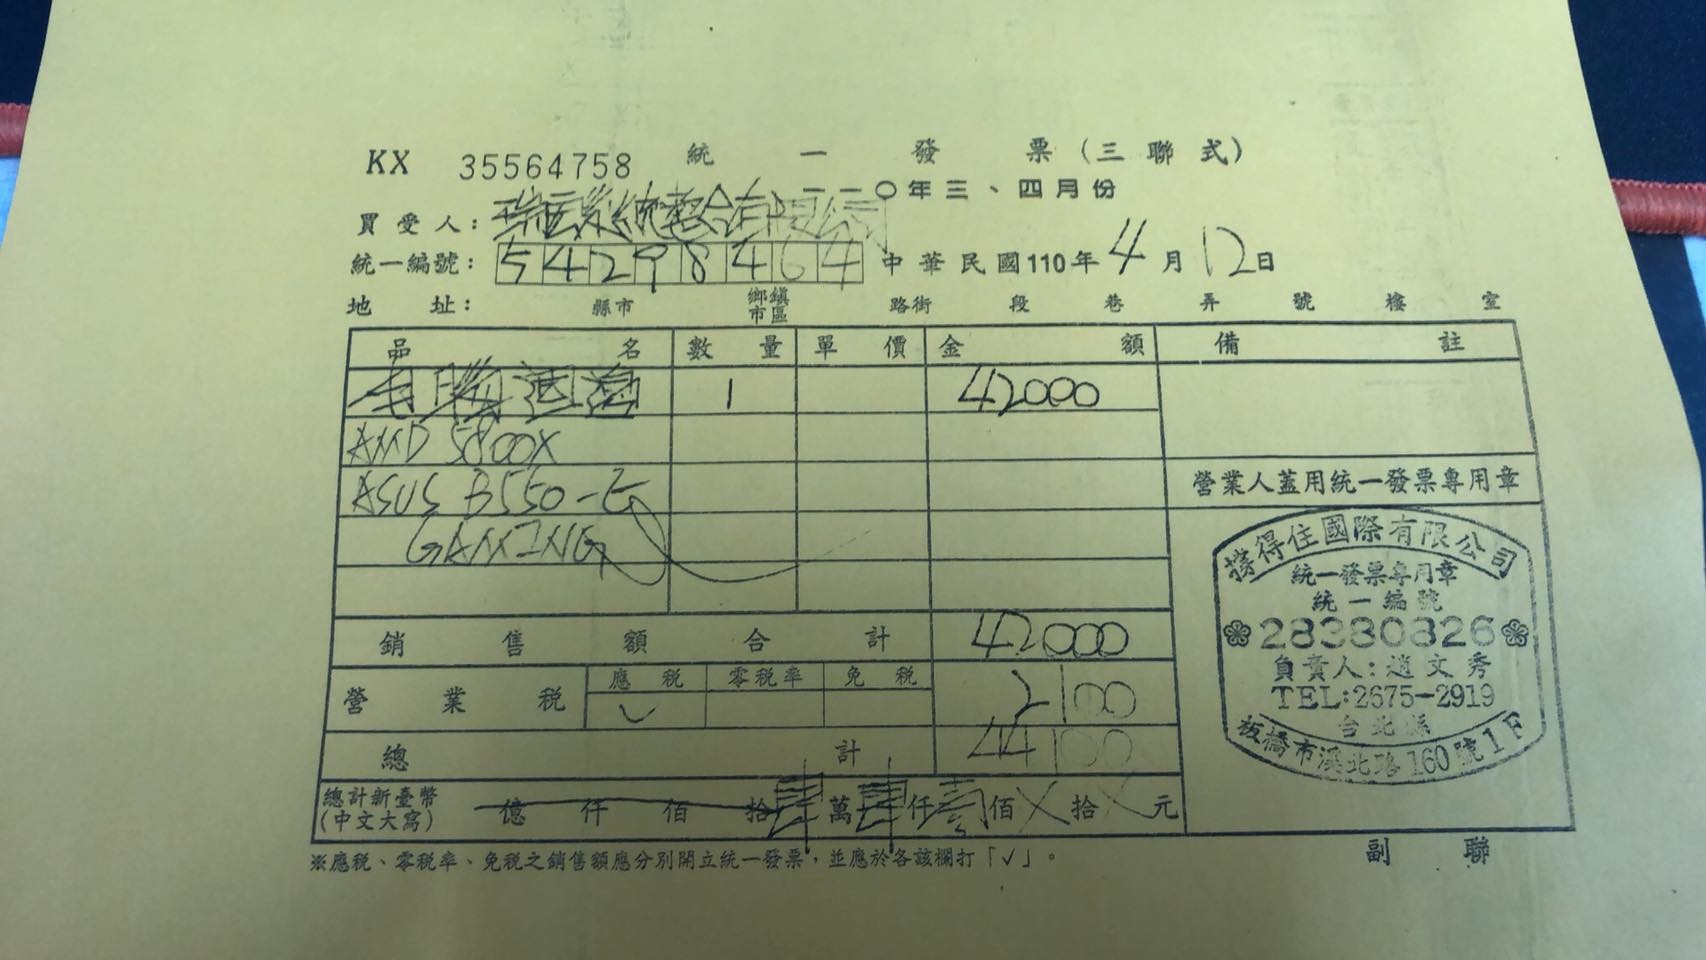 KX 35564758 統一發票(三聯式)
一一〇年三、四月份
買受人: 有限公司
統一編號: 54298464 中華民國110年4月12日
地址: 縣市 鄉鎮市區 路街 段 巷 弄 號 樓 室
品名 數量 單價 金額 備註
1 42000
AMD 5800X
ASUS B550-E
GAMING
營業人蓋用統一發票專用章
擋得住國際有限公司
統一發票專用章
統一編號
28380826
負責人:趙文秀
TEL:2675-2919
台北縣
板橋市溪北路160號1F
銷售額合計 42000
營業稅 應稅 零稅率 免稅 2100
✓
總計 44100
總計新臺幣(中文大寫) 億仟佰拾肆萬肆仟壹佰X拾X元
※應稅、零稅率、免稅之銷售額應分別開立統一發票,並應於各該欄打「✓」。
副聯